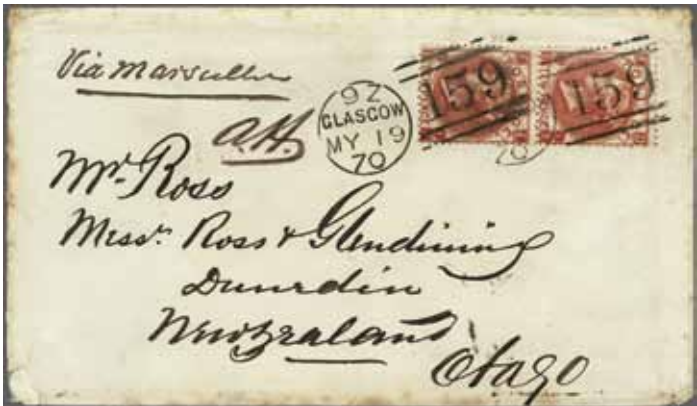 Via Marseilles
A.H.
9Z
GLASGOW
MY 19
70
159
159
Mr. Ross
Messrs Ross & Glendining
Dunedin
New Zealand
Otago